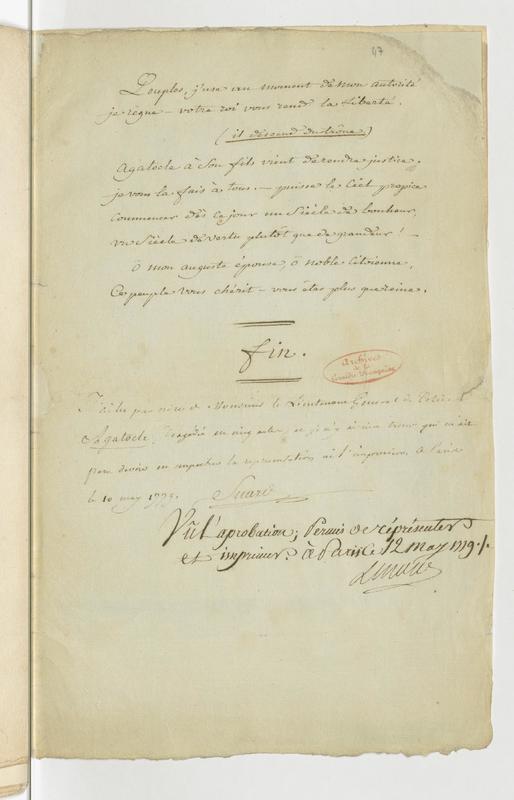 47
Peuples, j'use un moment de mon autorité
je règne – votre roi vous rend la Liberté.
(il descend du trône.)
Agatocle à son fils vient de rendre justice.
je vous la fais à tous. – puisse le Ciel propice
commencer dès ce jour un Siècle de bonheur,
un Siècle de vertu plutôt que de grandeur! –
ô mon auguste épouse, ô noble Citoienne,
Ce peuple vous chérit – vous êtes plus que reine.
fin.
Archives
de la
Comédie Française
J'ai lu par ordre de Monsieur le Lieutenant General de Police
Agatocle, Tragédie en cinq actes, et je n'y ai rien trouvé qui m'ait
paru devoir en empêcher la représentation ni l'impression. à Paris
le 10 may 1779. Suard
Vû l'aprobation; Permis de réprésenter
et imprimer. à Paris ce 12 may 1779./.
Lenoir